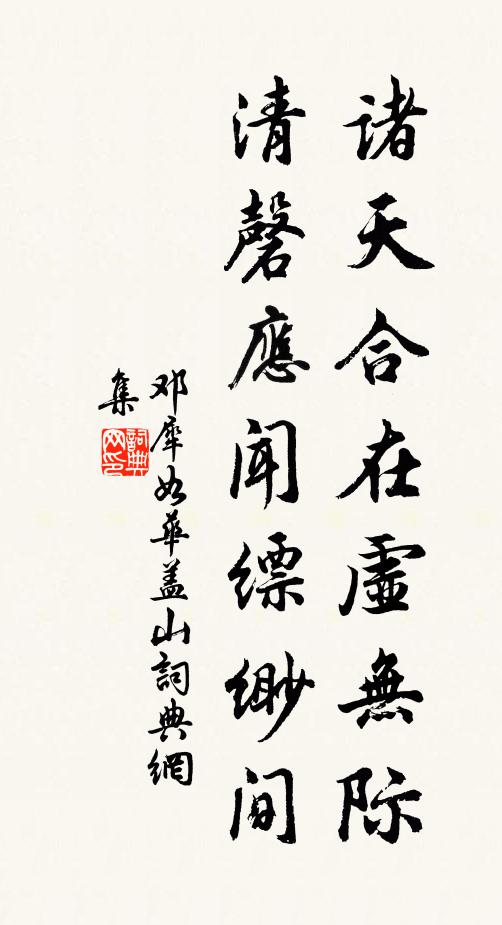 诸天合在虚無际
清磬應闻缥缈间
邓犀如華盖山詞典網
集
詞典
网印